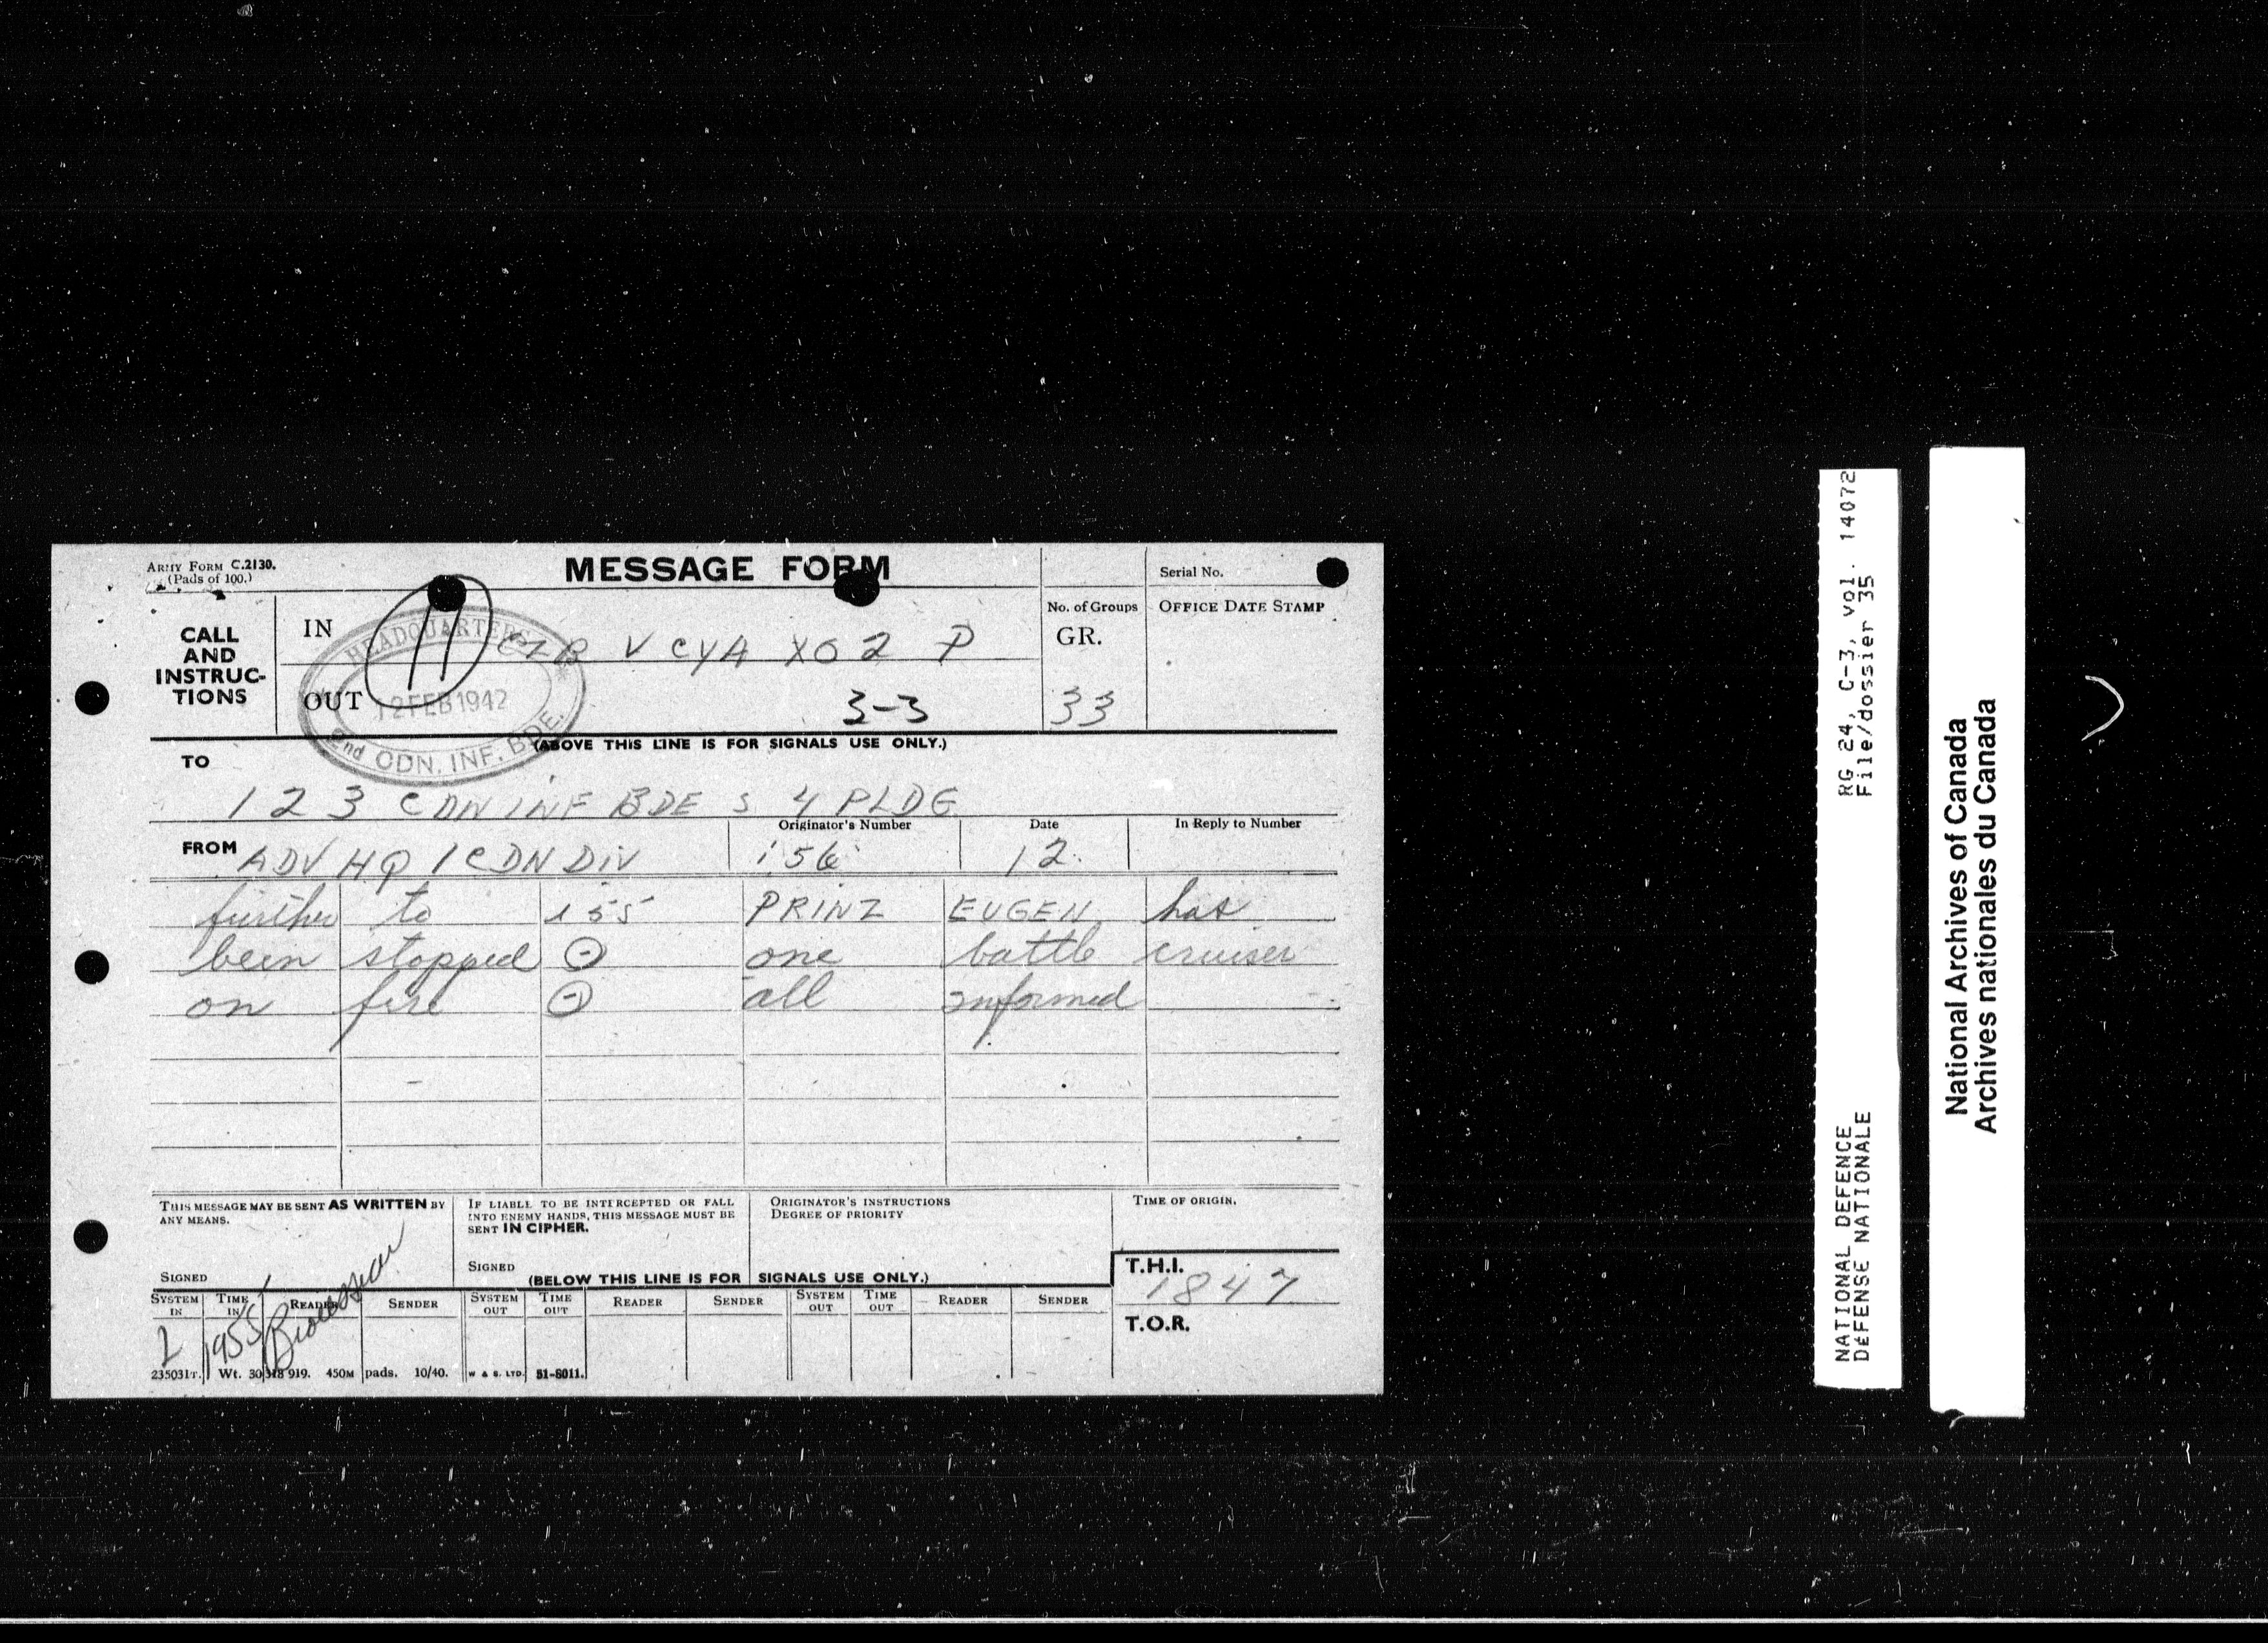 ARMY FORM C.2130.
(Pads of 100.)
MESSAGE FORM
Serial No.
CALL AND INSTRUC-TIONS
IN
11
CZB V CYA X02 P
No. of Groups
GR.
OFFICE DATE STAMP
OUT
3-3
33
HEADQUARTERS
12 FEB 1942
2nd CDN. INF. BDE.
(ABOVE THIS LINE IS FOR SIGNALS USE ONLY.)
TO
1 2 3 CDN INF BDE S 4 PLDG
FROM
ADV HQ 1 CDN DIV
Originator's Number
i56
Date
12
In Reply to Number
further to i55 PRINZ EUGEN has
been stopped ⊙ one battle cruiser
on fire ⊙ all informed
THIS MESSAGE MAY BE SENT AS WRITTEN BY
ANY MEANS.
SIGNED
IF LIABLE TO BE INTERCEPTED OR FALL
INTO ENEMY HANDS, THIS MESSAGE MUST BE
SENT IN CIPHER.
SIGNED
ORIGINATOR'S INSTRUCTIONS
DEGREE OF PRIORITY
TIME OF ORIGIN.
(BELOW THIS LINE IS FOR SIGNALS USE ONLY.)
T.H.I.
1847
T.O.R.
SYSTEM IN TIME IN READER SENDER SYSTEM OUT TIME OUT READER SENDER SYSTEM OUT TIME OUT READER SENDER
L 1955
235031T. Wt. 30318 919. 450M pads. 10/40. W & S. LTD. 51-8011.
RG 24, C-3, vol. 14072
File/dossier 35
NATIONAL DEFENCE
DÉFENSE NATIONALE
National Archives of Canada
Archives nationales du Canada